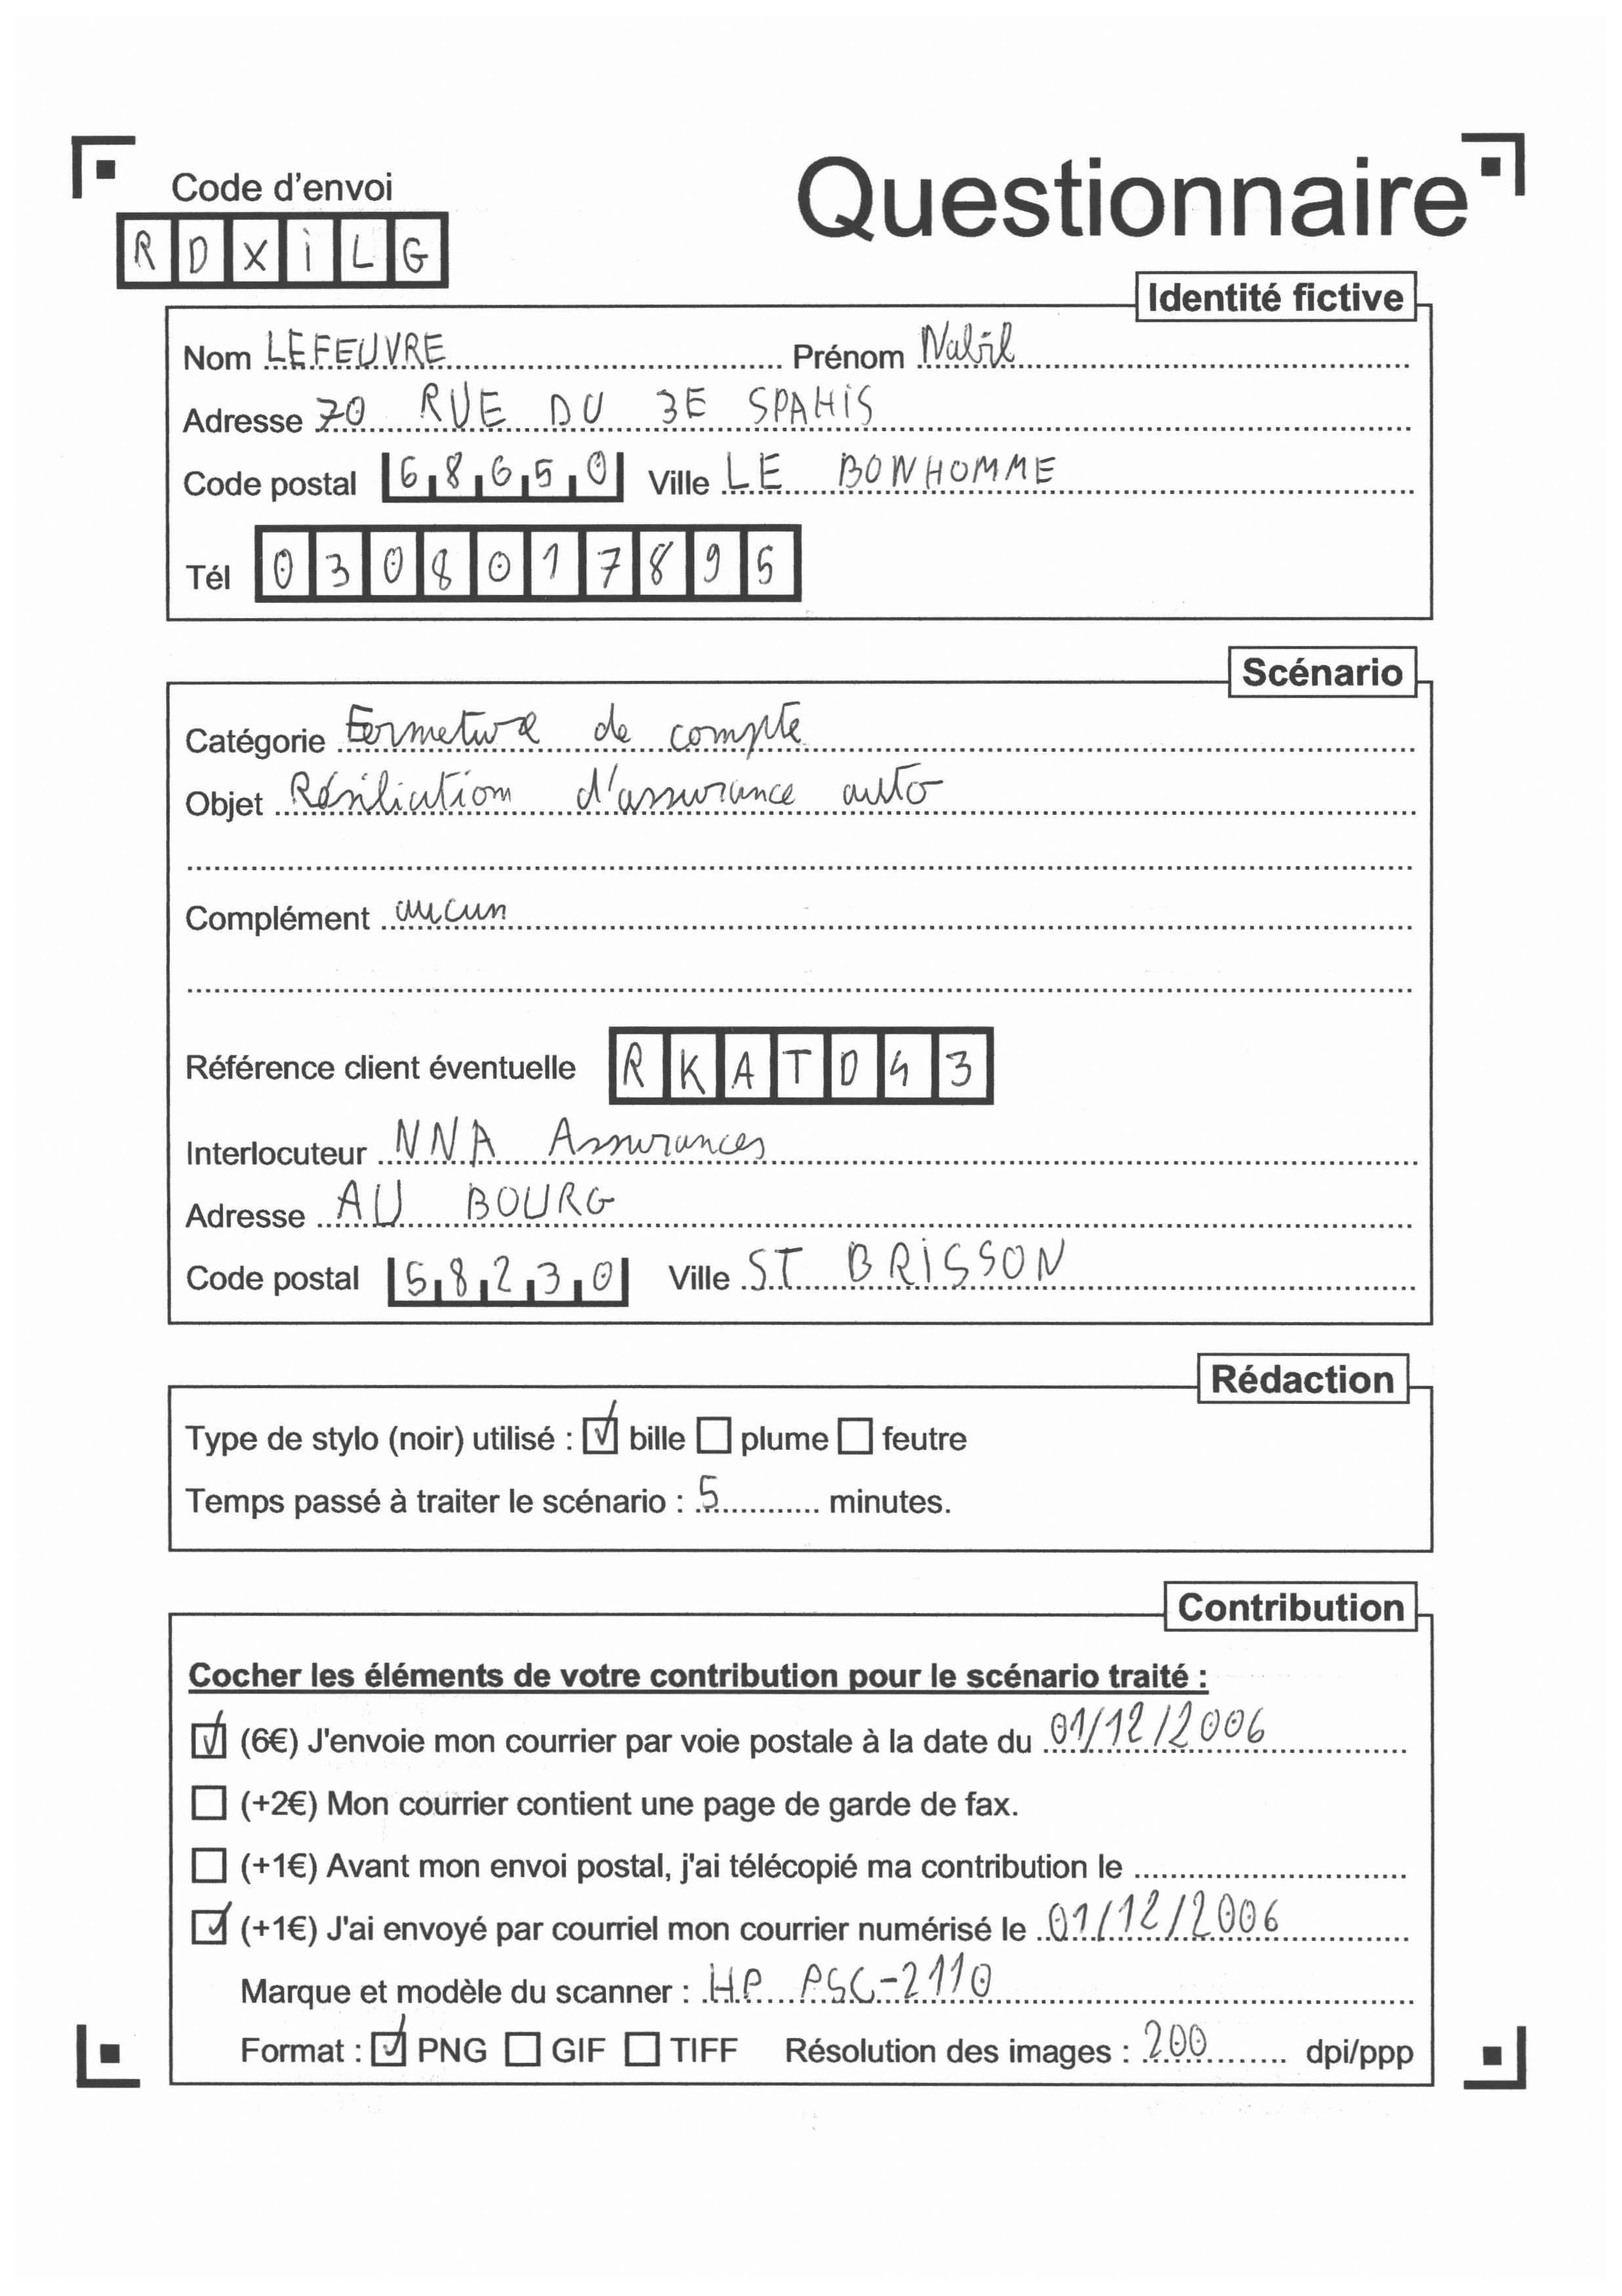 Code d'envoi
Questionnaire
RDXiLG
Identité fictive
Nom LEFEUVRE Prénom Nabil
Adresse 70 RUE DU 3E SPAHiS
Code postal 68650 Ville LE BONHOMME
Tél 0308017895
Scénario
Catégorie Fermeture de compte
Objet Résiliation d'assurance auto
Complément aucun
Référence client éventuelle RKATD43
Interlocuteur NNA Assurances
Adresse AU BOURG
Code postal 58230 Ville ST BRiSSON
Rédaction
Type de stylo (noir) utilisé : ☑ bille ☐ plume ☐ feutre
Temps passé à traiter le scénario : 5 minutes.
Contribution
Cocher les éléments de votre contribution pour le scénario traité :
☑ (6€) J'envoie mon courrier par voie postale à la date du 01/12/2006
☐ (+2€) Mon courrier contient une page de garde de fax.
☐ (+1€) Avant mon envoi postal, j'ai télécopié ma contribution le
☑ (+1€) J'ai envoyé par courriel mon courrier numérisé le 01/12/2006
Marque et modèle du scanner : HP PSC-2110
Format : ☑ PNG ☐ GIF ☐ TIFF Résolution des images : 200 dpi/ppp